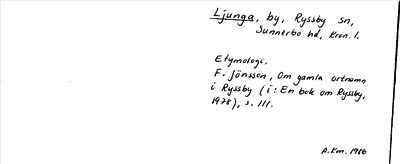 Ljunga, by, Ryssby sn,
Sunnerbo hd, Kron. l.
Etymologi.
F. Jönsson, Om gamla ortnamn
i Ryssby (i: En bok om Ryssby,
1978), s. 111.
A.Km. 1986